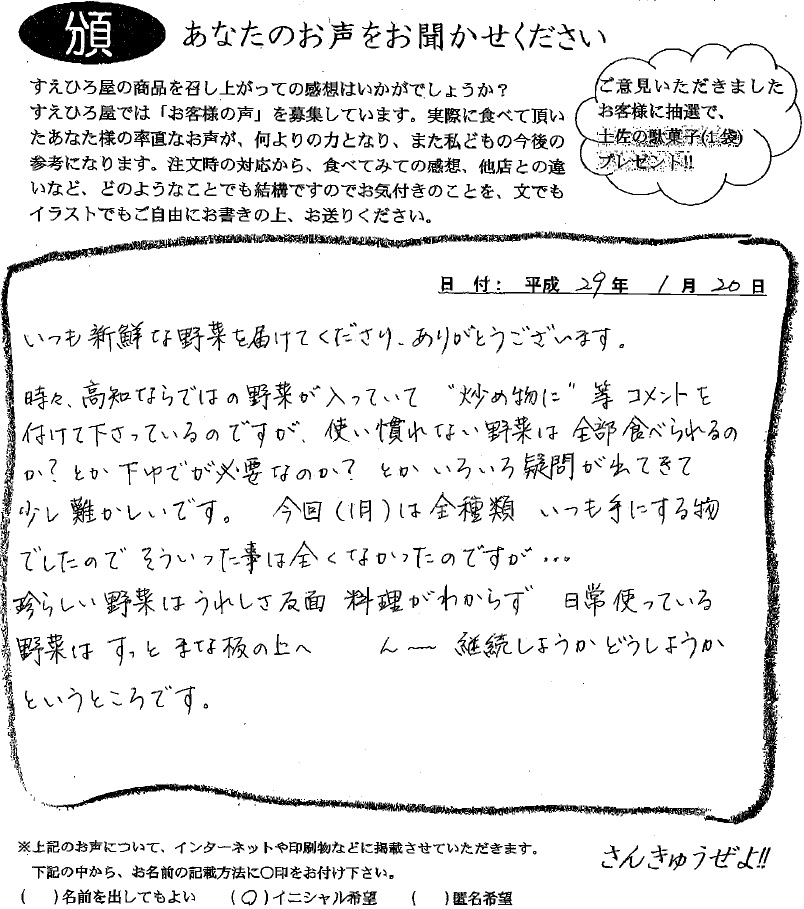 頒 あなたのお声をお聞かせください
すえひろ屋の商品を召し上がっての感想はいかがでしょうか？
すえひろ屋では「お客様の声」を募集しています。実際に食べて頂い
たあなた様の率直なお声が、何よりの力となり、また私どもの今後の
参考になります。注文時の対応から、食べてみての感想、他店との違
いなど、どのようなことでも結構ですのでお気付きのことを、文でも
イラストでもご自由にお書きの上、お送りください。
ご意見いただきました
お客様に抽選で、
土佐の駄菓子(1袋)
プレゼント!!
日 付： 平成 29年 1月 20日
いつも新鮮な野菜を届けてくださり、ありがとうございます。
時々、高知ならではの野菜が入っていて "炒め物に" 等 コメントを
付けて下さっているのですが、使い慣れない野菜は 全部食べられるの
か？とか 下ゆでが必要なのか？ とか いろいろ疑問が出てきて
少し難かしいです。 今回(1月)は全種類 いつも手にする物
でしたので そういった事は全くなかったのですが…
珍らしい野菜はうれしさ反面 料理がわからず 日常使っている
野菜は すっと まな板の上へ ん〜 継続しようかどうしようか
というところです。
※上記のお声について、インターネットや印刷物などに掲載させていただきます。
下記の中から、お名前の記載方法に〇印をお付け下さい。
さんきゅうぜよ!!
( )名前を出してもよい (〇)イニシャル希望 ( )匿名希望